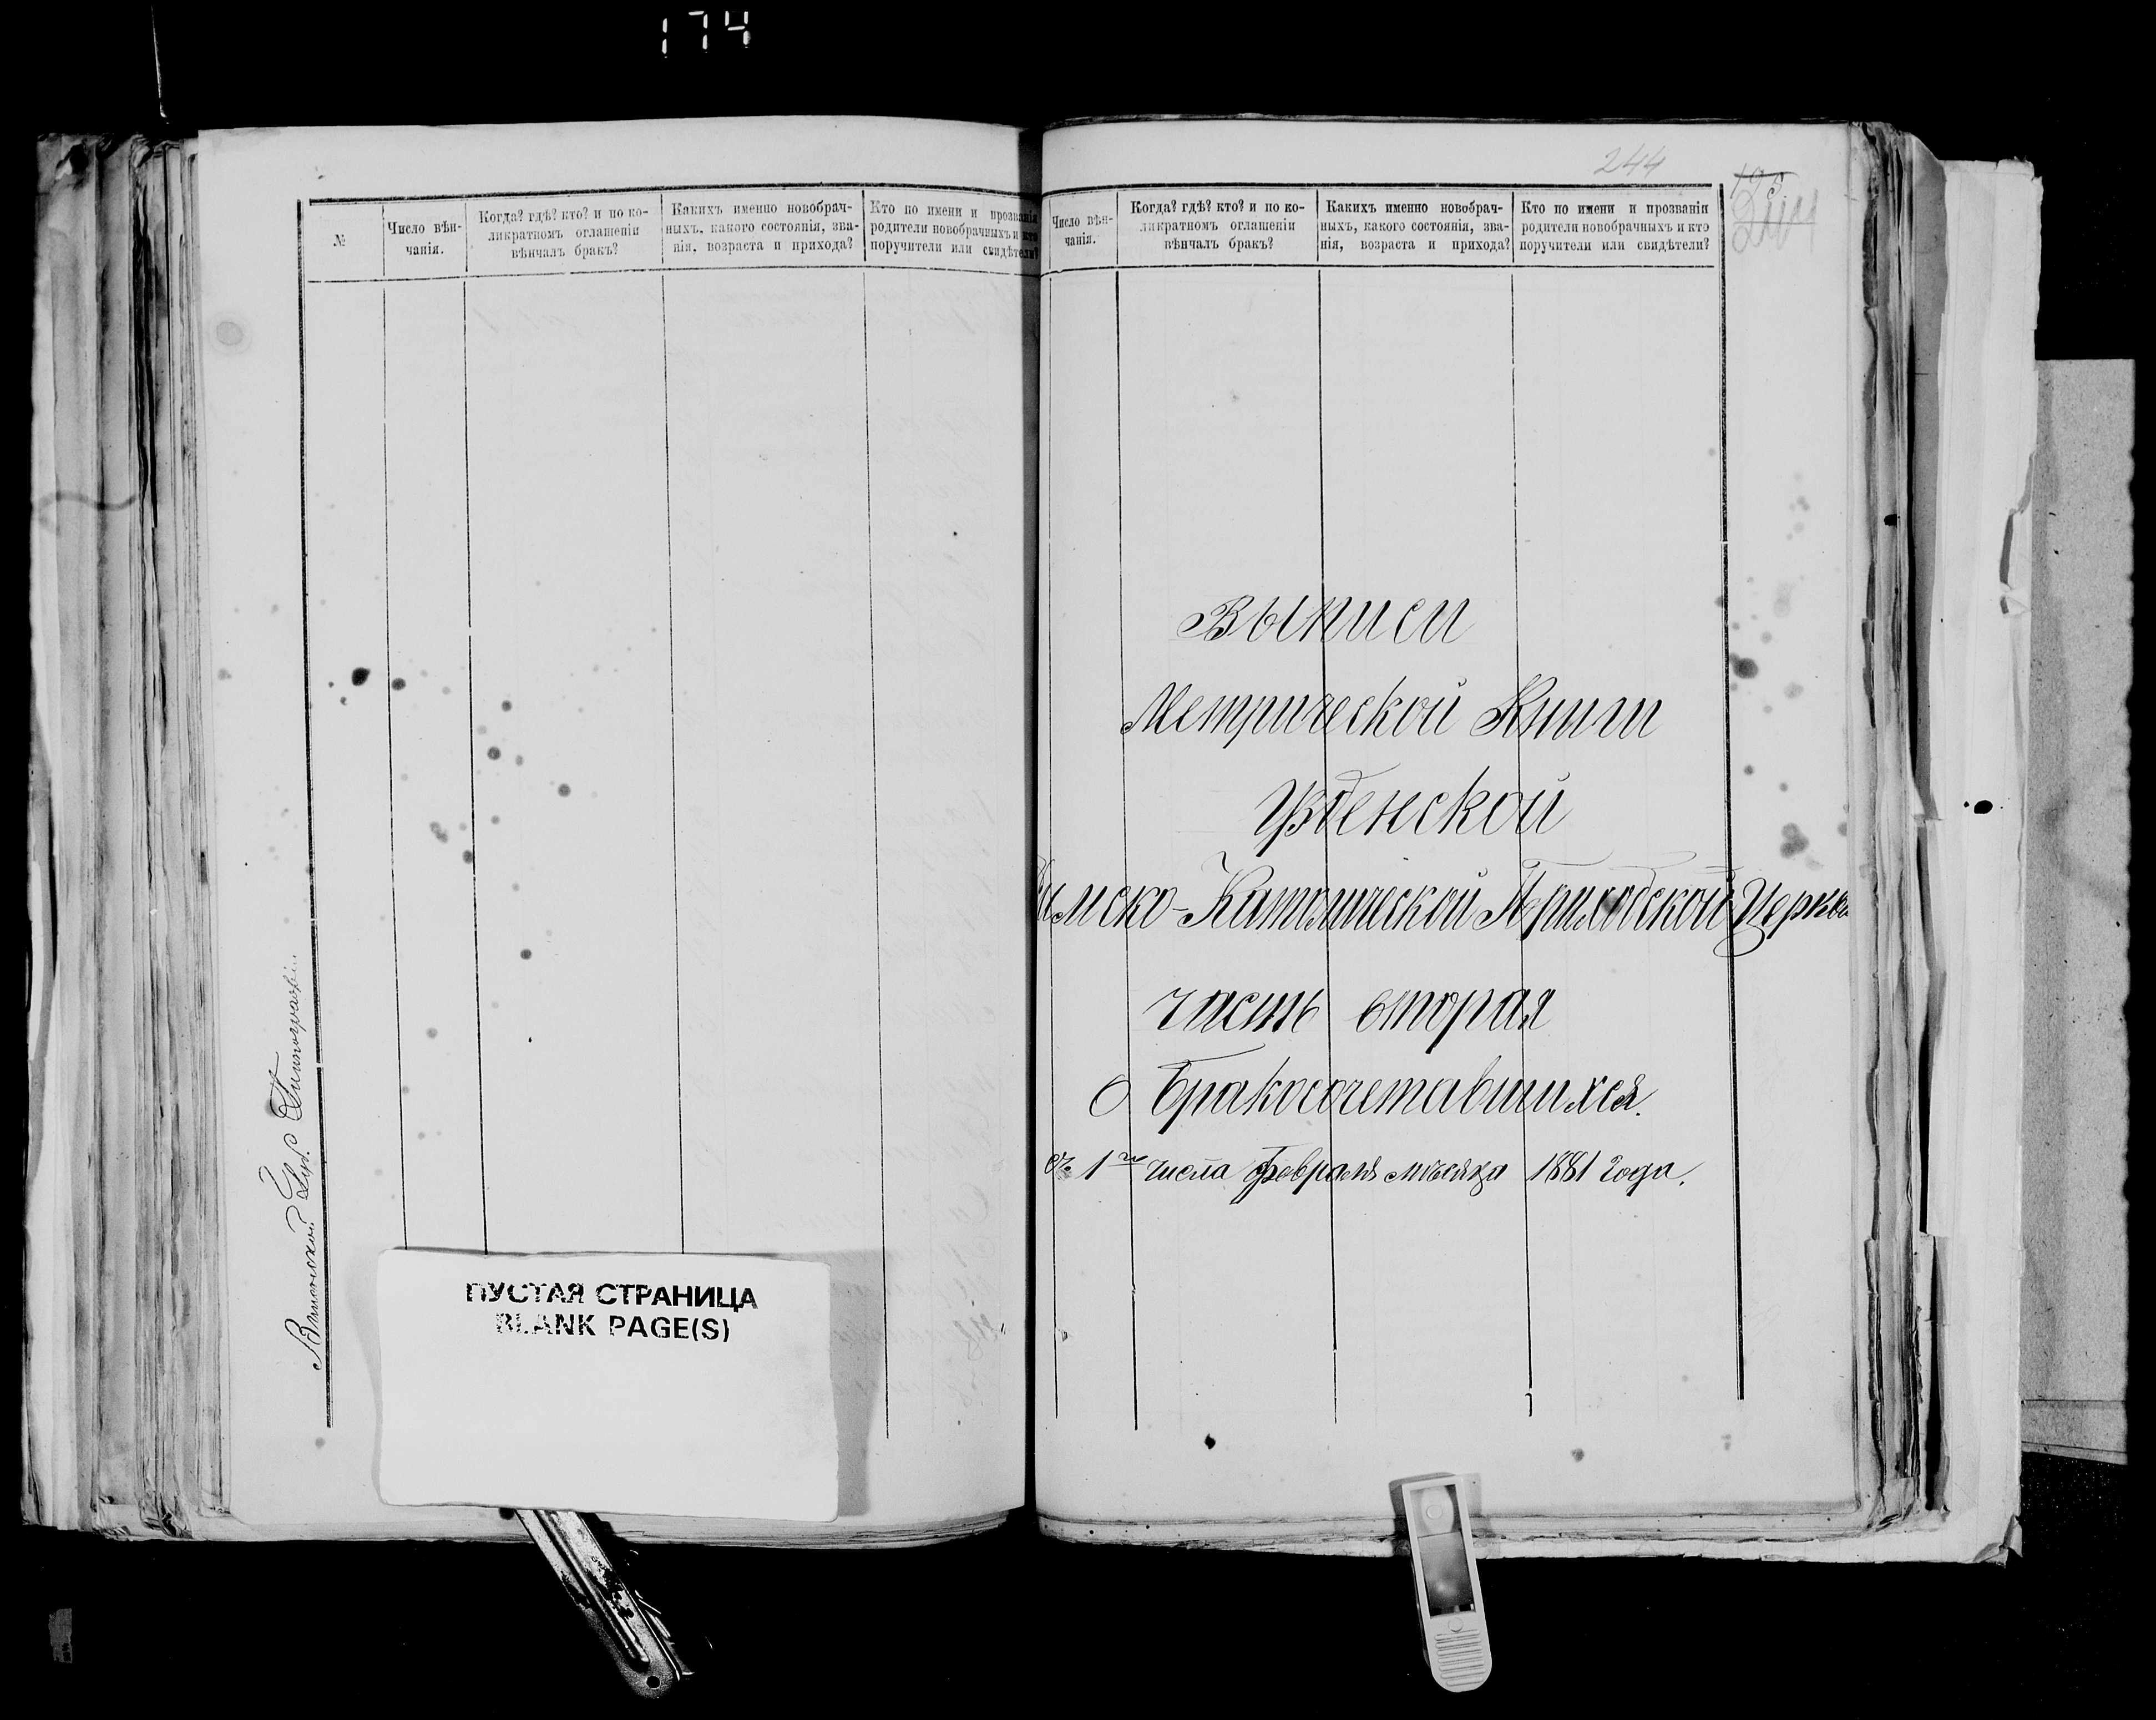 174
№
Число вѣн-
чанія.
Когда? гдѣ? кто? и по ко-
ликратномъ оглашеніи
вѣнчалъ бракъ?
Какихъ именно новобрач-
ныхъ, какого состоянія, зва-
нія, возраста и прихода?
Кто по имени и прозванія
родители новобрачныхъ и кто
поручители или свидѣтели?
Виленской Губ. Типографіи.
ПУСТАЯ СТРАНИЦА
BLANK PAGE(S)
244
195
Число вѣн-
чанія.
Когда? гдѣ? кто? и по ко-
ликратномъ оглашеніи
вѣнчалъ бракъ?
Какихъ именно новобрач-
ныхъ, какого состоянія, зва-
нія, возраста и прихода?
Кто по имени и прозванія
родители новобрачныхъ и кто
поручители или свидѣтели?
Выписи
Метрической Книги
Римско-Католической Приходской Церкви
часть вторая
О Бракосочетавшихся.
съ 1го числа Февраля мѣсяца 1881 года.